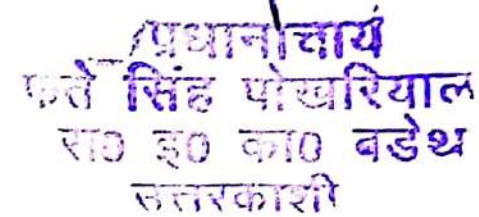 प्रधानाचार्य
फते सिंह पोखरियाल
रा0 इ0 का0 वडेथ
उत्तरकाशी